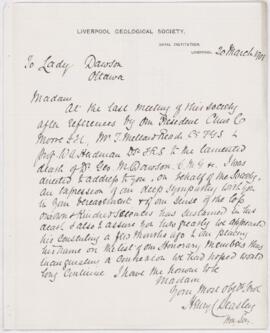 LIVERPOOL GEOLOGICAL SOCIETY.
ROYAL INSTITUTION,
LIVERPOOL, 20 March 1901
To Lady Dawson
Ottawa
Madam
At the last meeting of this Society
after references by our President
Moore Mr. T. Mellard Reade CE FGS &
Prof W A Herdman DSc FRS to the lamented
death of Dr Geo M Dawson, C.M.G &c. I was
desired to address to you, on behalf of the Society,
an expression of our deep sympathy with you
in your bereavement & of our sense of the loss
Science has sustained in his
death & also to assure you how greatly we appreciated
his consenting a few months ago to our placing
his name on the list of our Honorary Members thus
a connexion we had hoped would
long continue I have the honour to be
Madam
Your most Obdt Svt
Henry C Beasley
Hon Sec.